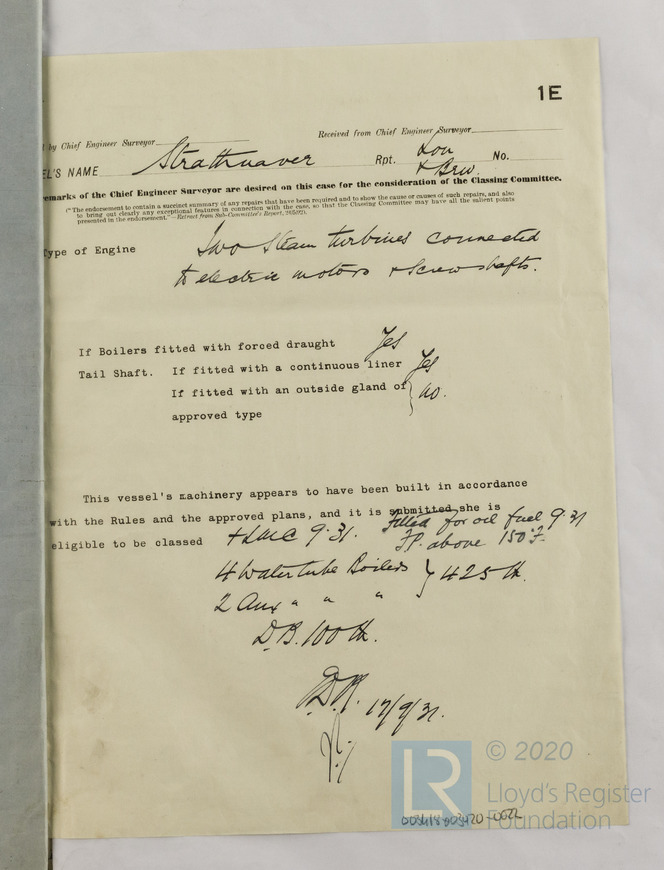 1E
by Chief Engineer Surveyor
Received from Chief Engineer Surveyor
EL'S NAME Strathnaver Rpt. Lon & Brw. No.
emarks of the Chief Engineer Surveyor are desired on this case for the consideration of the Classing Committee.
("The endorsement to contain a succinct summary of any repairs that have been required and to show the cause or causes of such repairs, and also
to bring out clearly any exceptional features in connection with the case, so that the Classing Committee may have all the salient points
presented in the endorsement."—Extract from Sub-Committee's Report,
Type of Engine Two Steam turbines connected
to electric motors & screwshafts.
If Boilers fitted with forced draught Yes
Tail Shaft. If fitted with a continuous liner Yes
If fitted with an outside gland of
approved type } no.
This vessel's machinery appears to have been built in accordance
with the Rules and the approved plans, and it is submitted she is
eligible to be classed +LMC 9.31. Fitted for oil fuel 9.31
F.P. above 150°F.
4 Watertube Boilers } 425 lb.
2 Aux " " "
D.B. 100 lb.
17/9/31.
LR
© 2020
Lloyd's Register
Foundation
003418-003420-0022